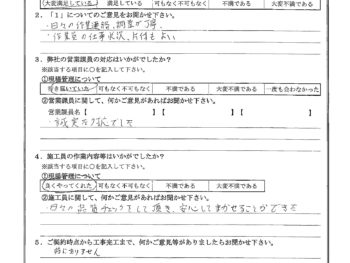 大変満足している 満足している 可もなく不可もなく 不満である 大変不満である
2．「1」についてのご意見をお聞かせ下さい。
・日々の作業連絡、調整が丁寧、
・作業員の仕事状況、片付もよい
3．弊社の営業課員の対応はいかがでしたか？
※該当する項目に○を記入して下さい。
①現場管理について
行き届いていた 可もなく不可もなく 不満である 大変不満である 一度も会わなかった
②営業課員に関して、何かご意見があればお聞かせ下さい。
営業課員名【 】【 】【 】
・誠実な対応でした
4．施工員の作業内容等はいかがでしたか？
※該当する項目に○を記入して下さい。
①現場管理について
良くやってくれた 可もなく不可もなく 不満である 大変不満である
②施工員に関して、何かご意見があればお聞かせ下さい。
・日々の品質チェックをして頂き、安心してまかせることができた
5．ご契約時点から工事完工まで、何かご意見等がありましたらお聞かせ下さい。
特にありません